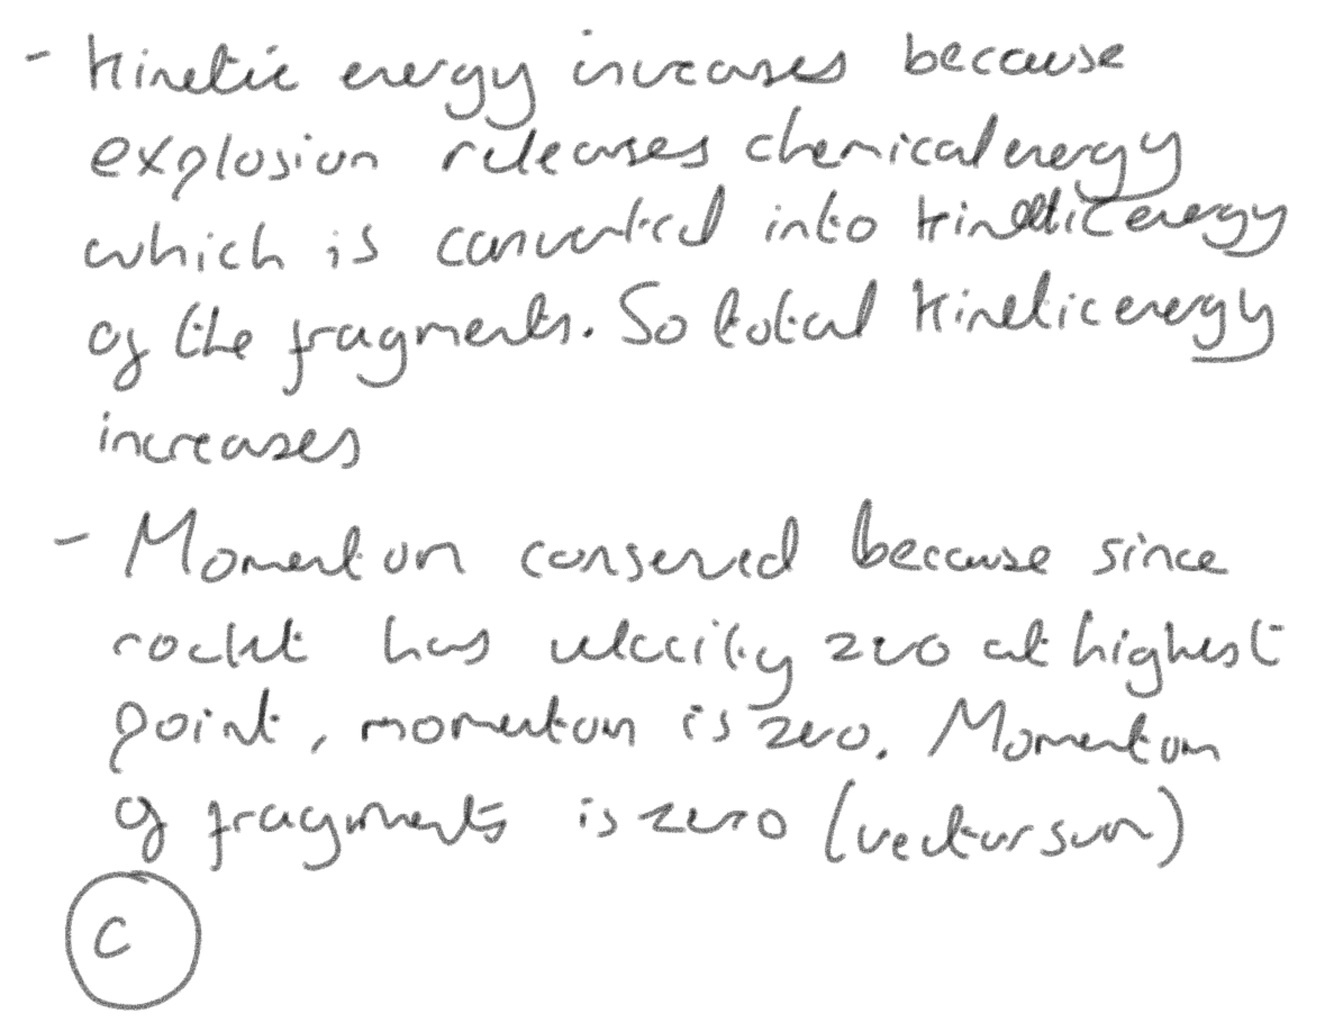 - Kinetic energy increases because
explosion releases chemical energy
which is converted into kinetic energy
of the fragments. So total kinetic energy
increases
- Momentum conserved because since
rocket has velocity zero at highest
point, momentum is zero. Momentum
of fragments is zero (vector sum)
C